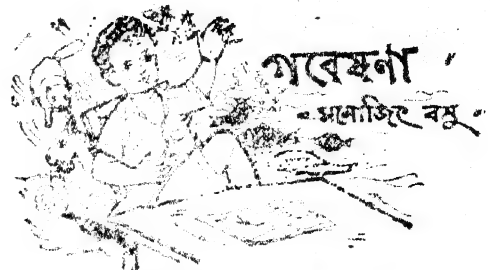 গবেষণা
মনোজিৎ বসু